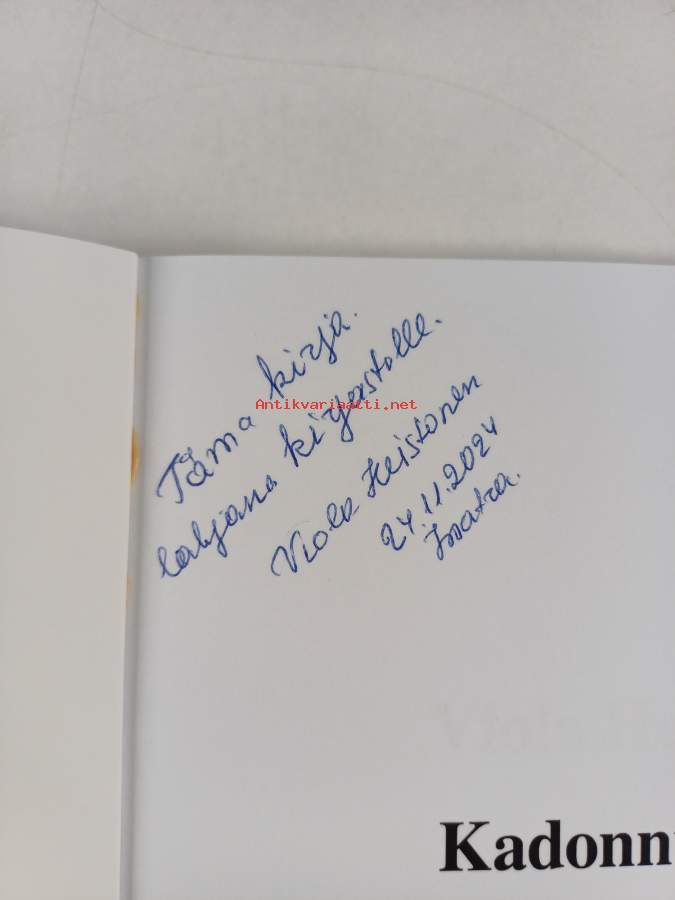 Tämä kirja.
lahjana kirjastolle.
Viola Heistonen
24.11.2024
Imatra.
Antikvariaatti.net
Kadonn